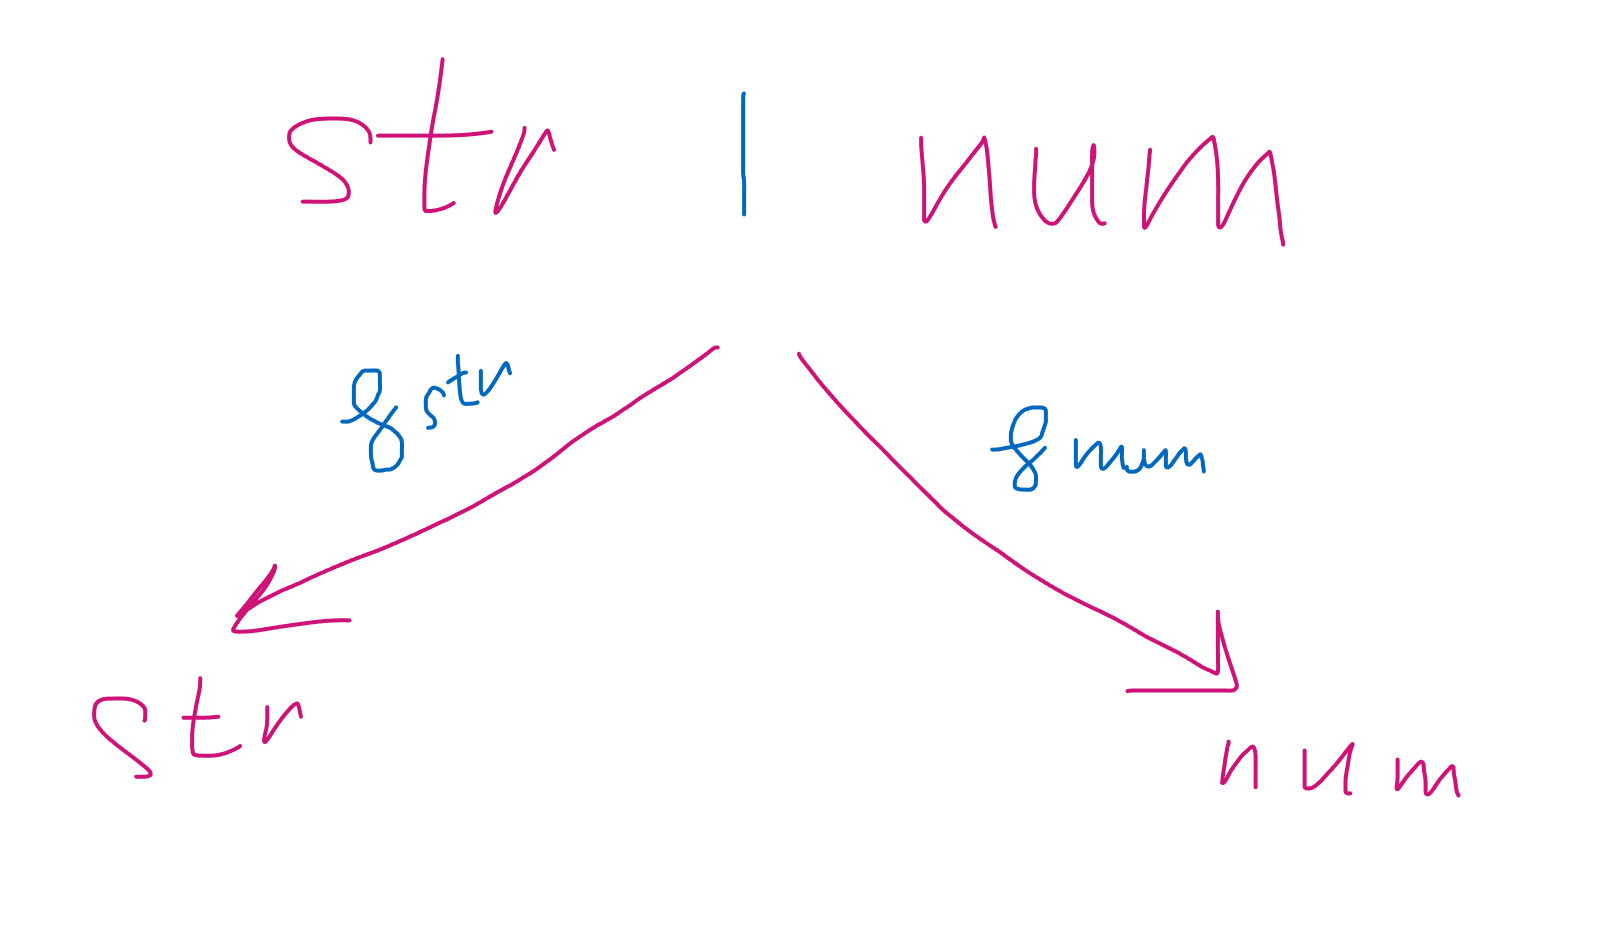 str | num
fstr
fnum
str
num